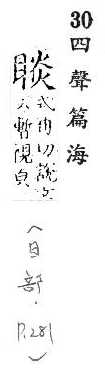 30四聲篇海
睒
式冉切説文
云暫視皃
(目部.
P.281)